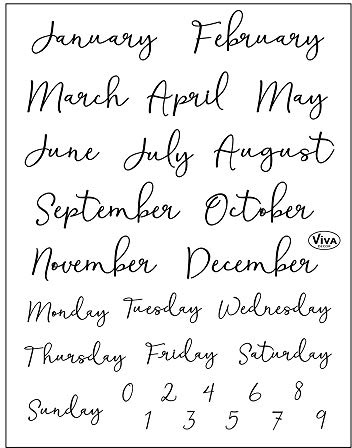 January February
March April May
June July August
September October
November December
VIVA DECOR
Monday Tuesday Wednesday
Thursday Friday Saturday
Sunday 0 2 4 6 8
1 3 5 7 9